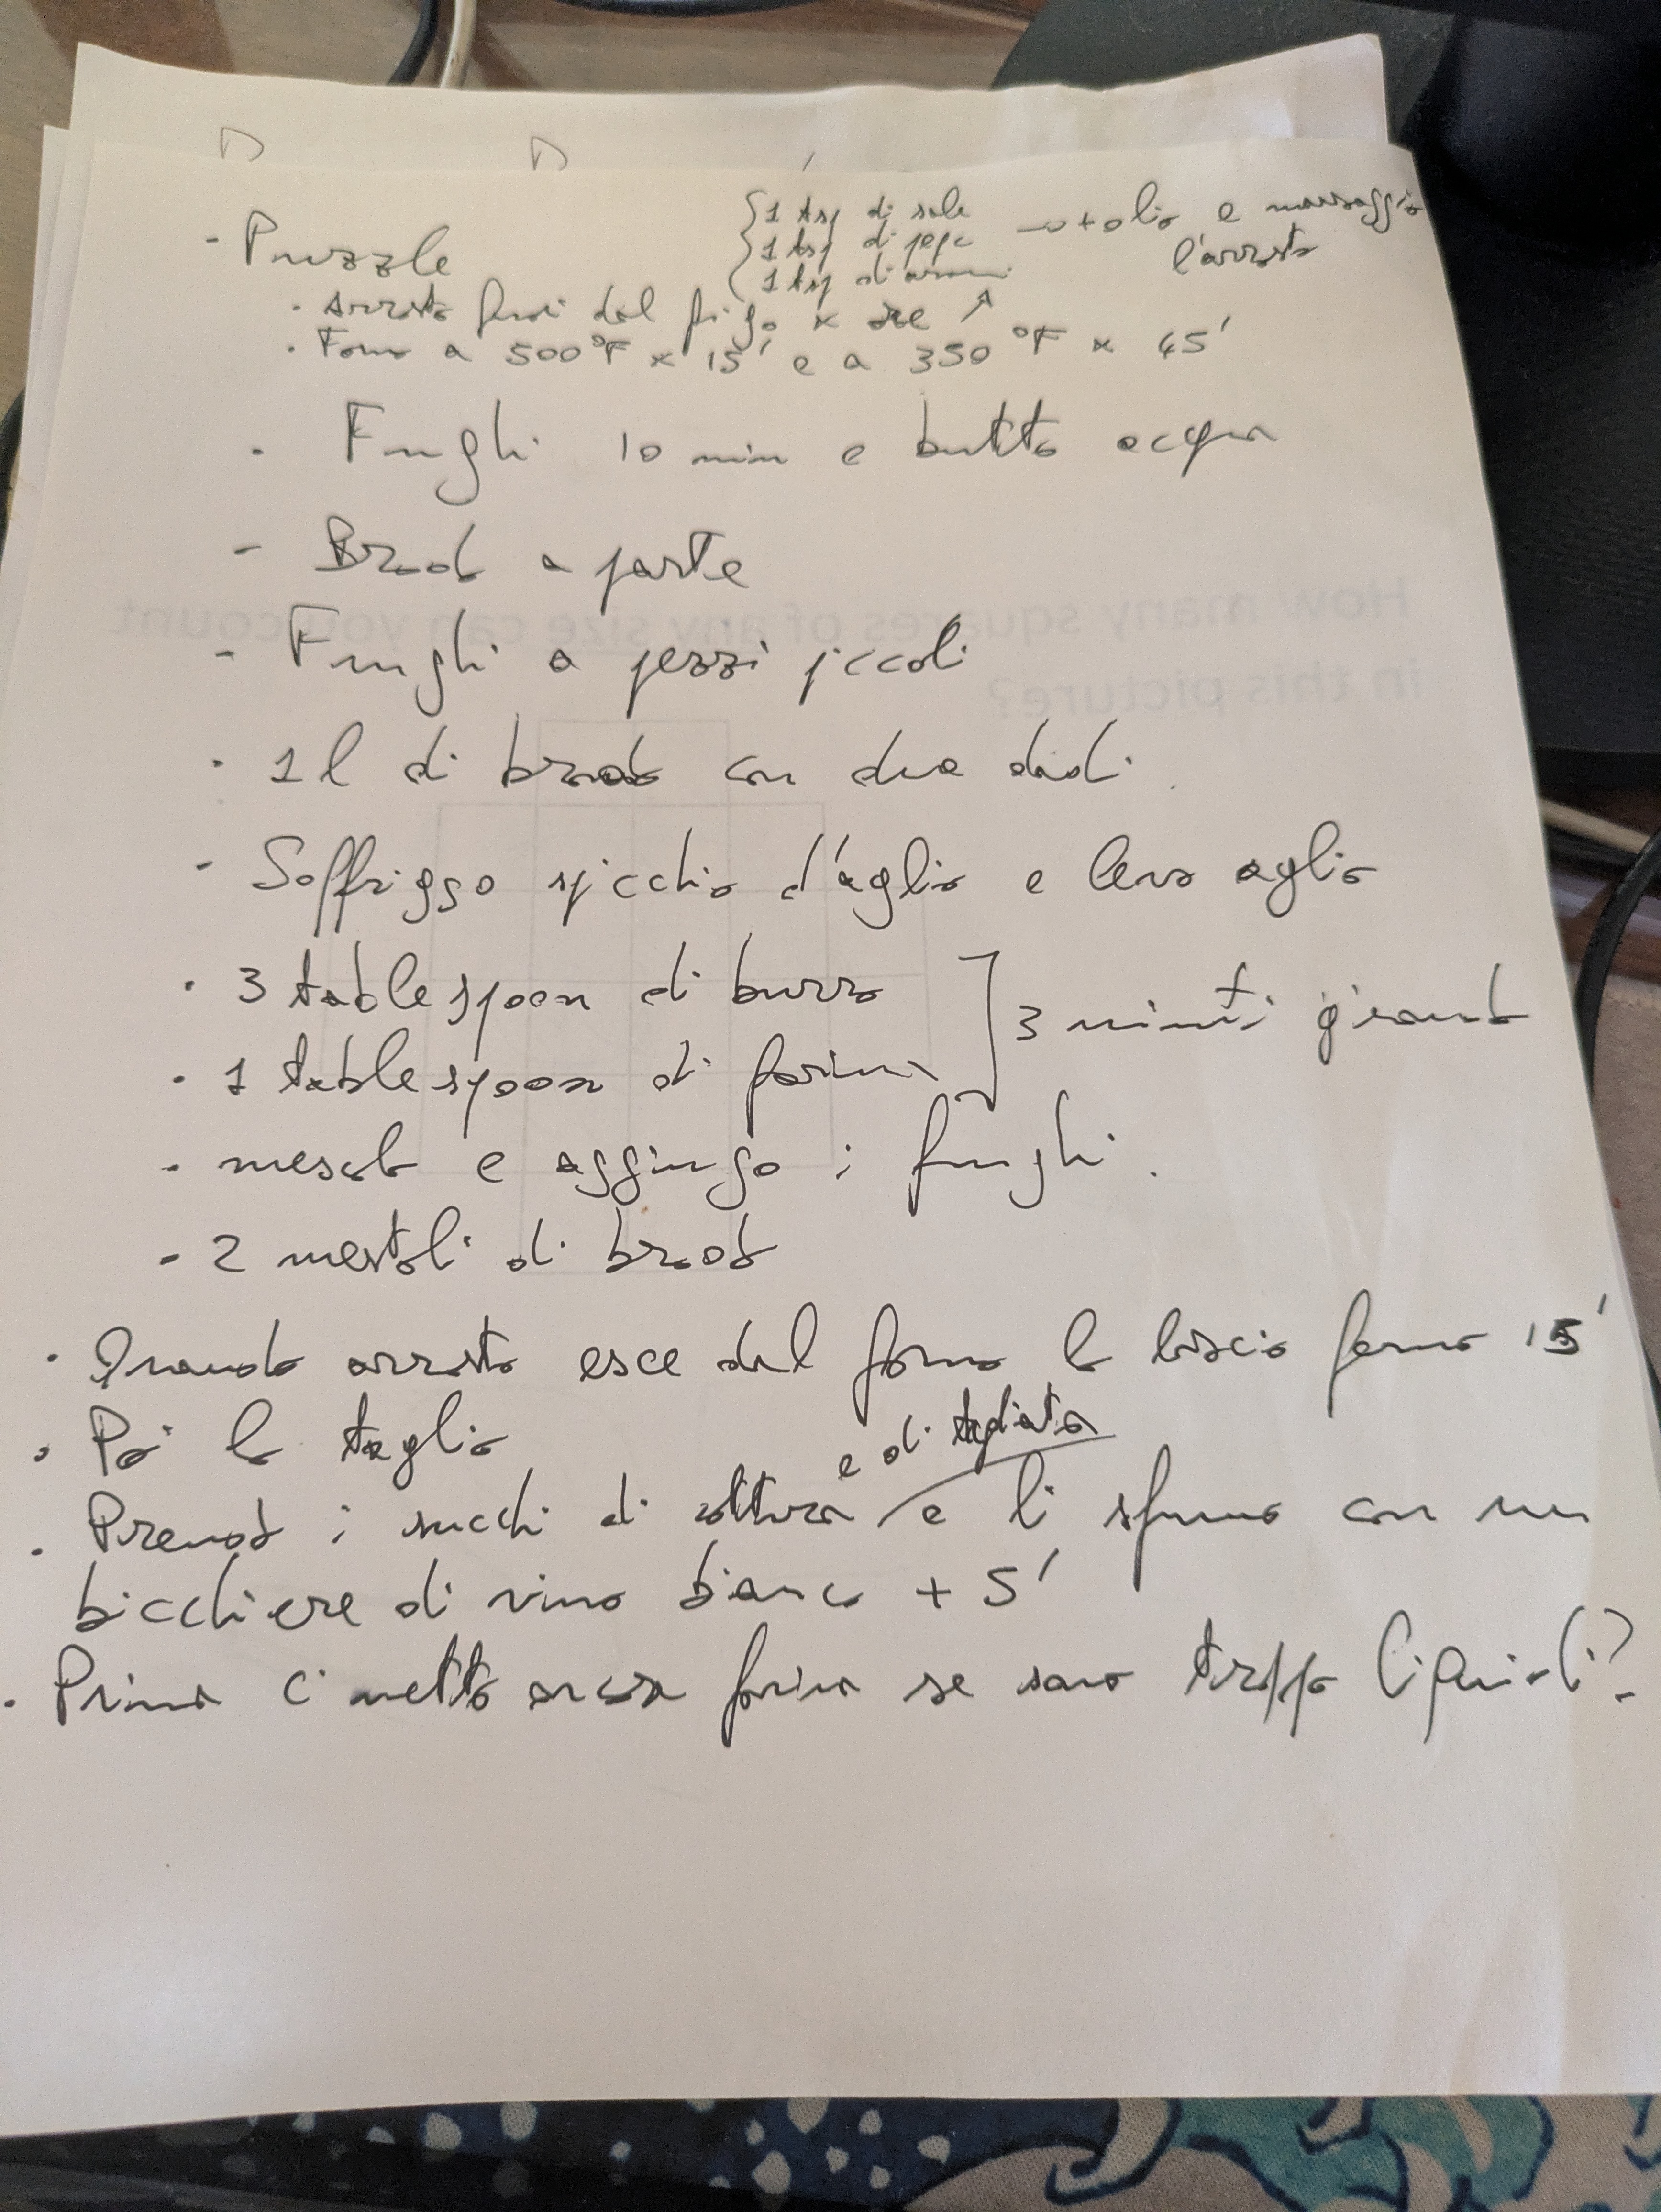 - Puzzle
1 tsp di sale
1 tsp di pepe
1 tsp di aromi
→ + olio e massaggio
l'arrosto
· Arrosto fuori dal frigo x ore
· Forno a 500°F x 15' e a 350°F x 45'
· Funghi 10 min e butto acqua
- Brodo a parte
- Funghi a pezzi piccoli
· 1 l di brodo con due dadi.
- Soffriggo spicchio d'aglio e levo aglio
· 3 tablespoon di burro
· 1 tablespoon di farina
] 3 minuti girando
· mescolo e aggiungo i funghi.
- 2 mestoli di brodo
· Quando arrosto esce dal forno lo lascio fermo 15'
· Poi lo taglio
e di tagliata
· Prendo i succhi di cottura e li sfumo con un
bicchiere di vino bianco + 5'
· Prima ci metto ancora farina se sono troppo liquidi?
How many squares of any size can you count
in this picture?